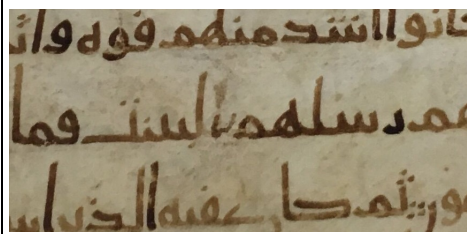 كانوا اشد منهم قوه واث
هم رسلهم بالبينت فما
مون ثم كان عقبه الذين اس